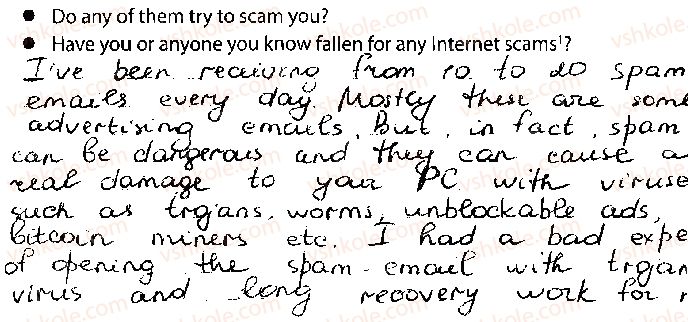 ● Do any of them try to scam you?
● Have you or anyone you know fallen for any Internet scams¹?
I've been receiving from 10 to 20 spam
emails every day. Mostly these are some
advertising emails. But, in fact, spam
can be dangerous and they can cause a
real damage to your PC with viruse
such as trojans, worms, unblockable ads,
bitcoin miners etc. I had a bad expe
of opening the spam-email with trojan
virus and long recovery work for